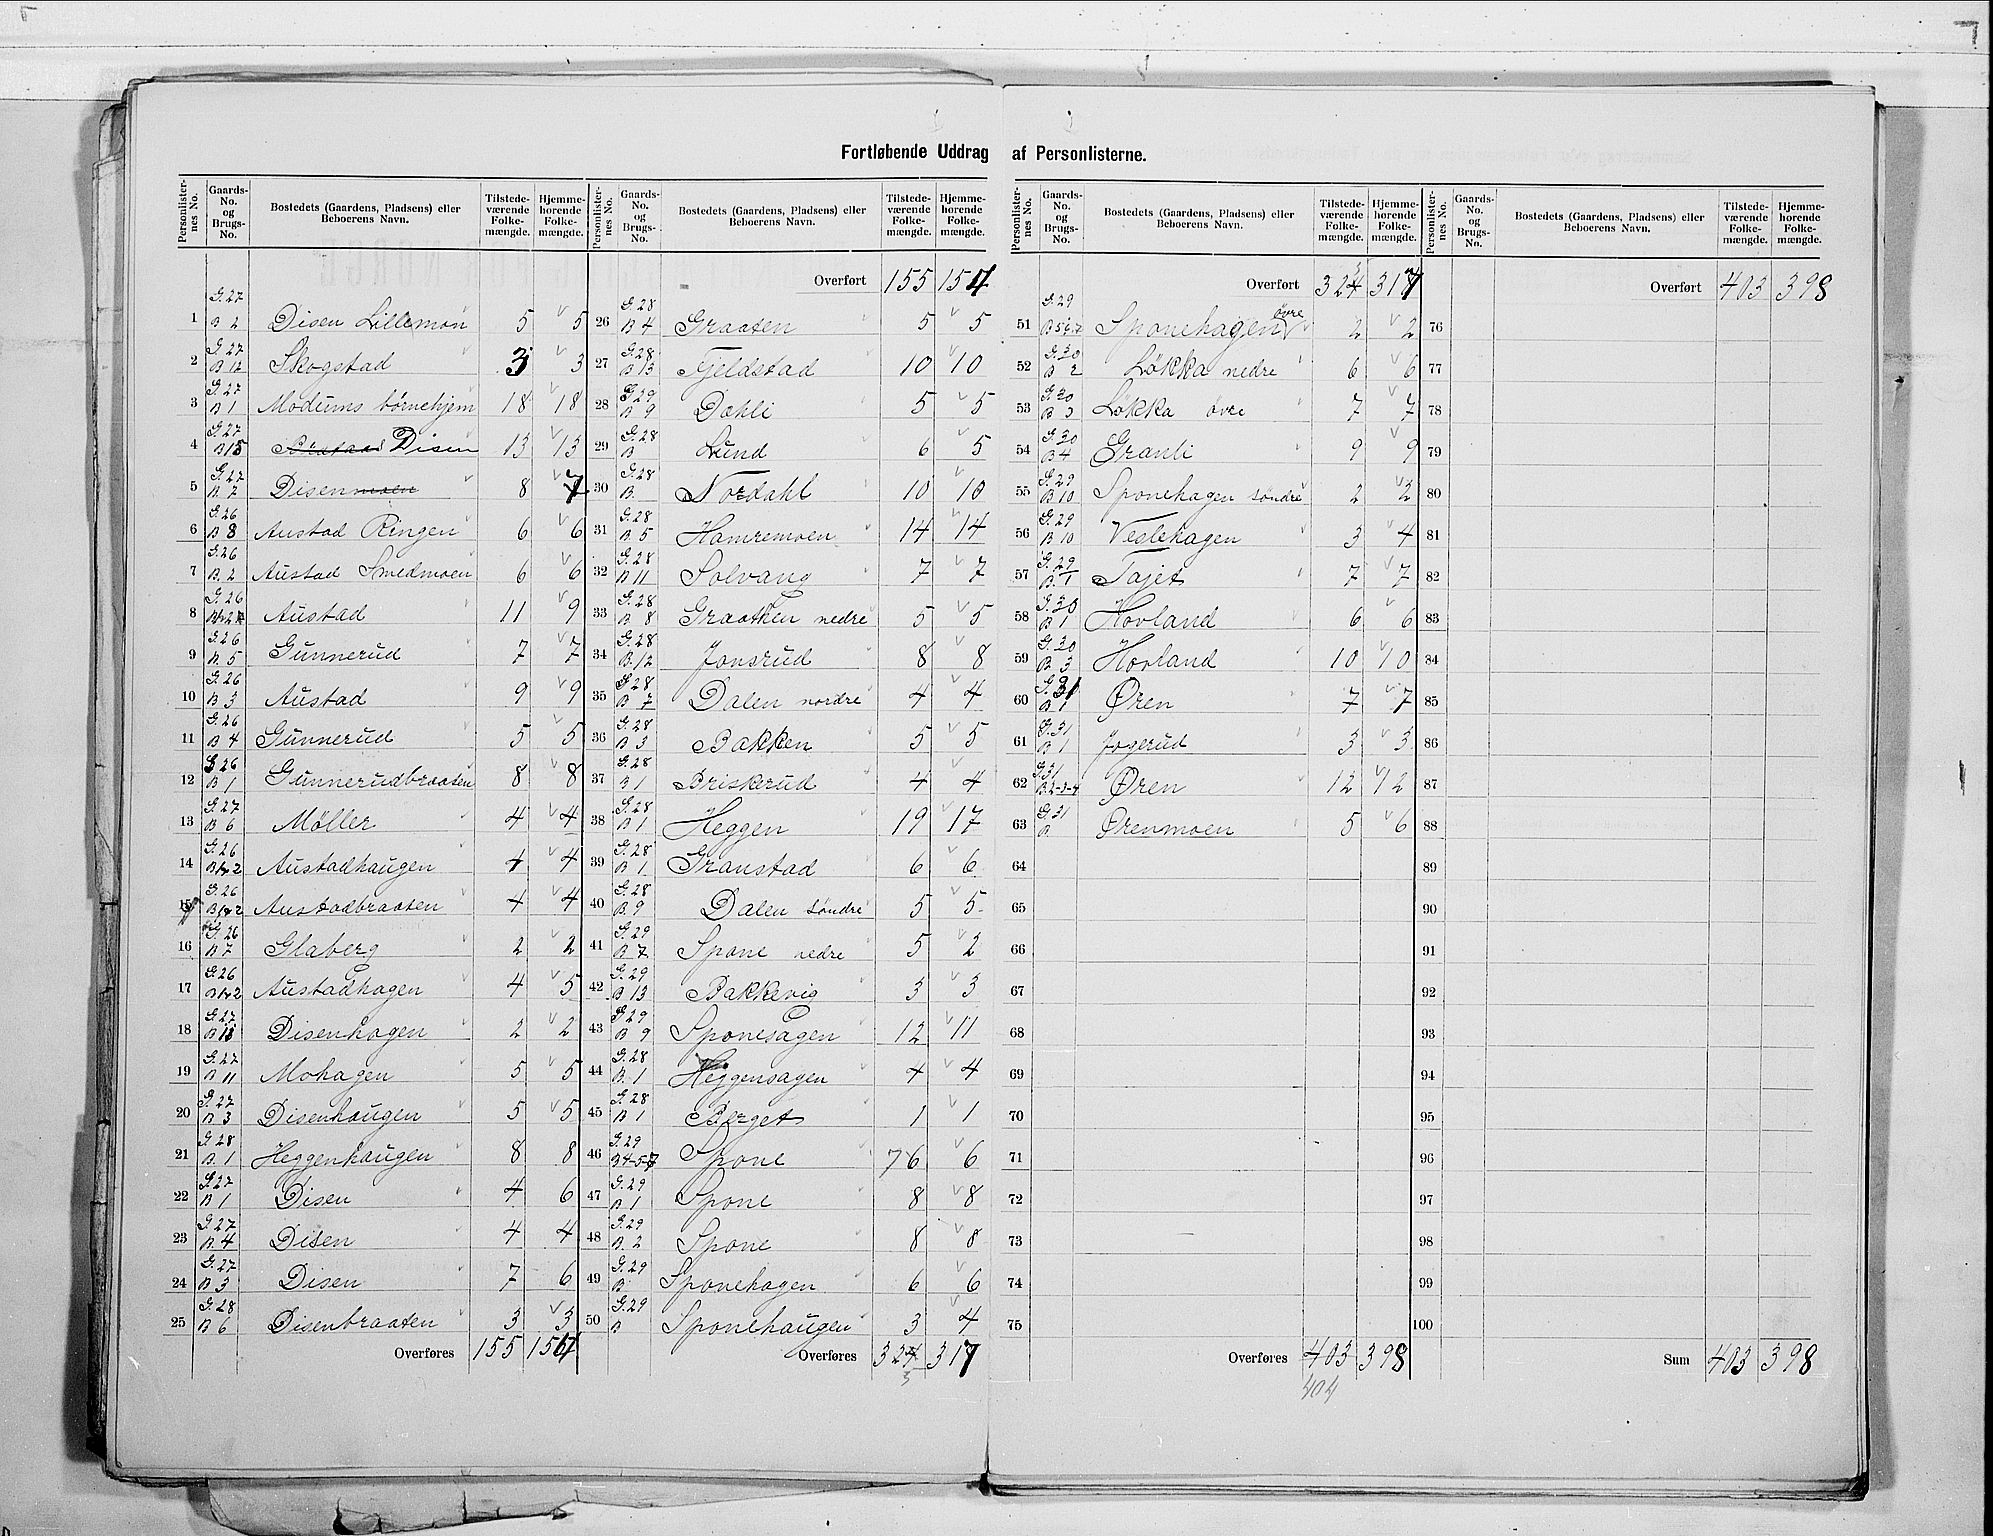 Fortløbende Uddrag af Personlisternе.
Personlisternes No. Gaards-No. og Brugs-No. Bostedets (Gaardens, Pladsens) eller Beboerens Navn. Tilstedeværende Folkemængde. Hjemmehorende Folkemængde.
Overført 155 154
1 G. 27 B 2 Disen Lillemon 5 5
2 G. 27 B 12 Skogstad 3 3
3 G. 27 B 1 Modums börnehjem 18 18
4 G. 27 B 15 Disen 13 13
5 G. 27 B. 7 Disenmoen 8 7
6 G. 26 B 8 Austad Ringen 6 6
7 G. 26 B. 2 Austad Smedmoen 6 6
8 G. 26 Austad 11 9
9 G. 26 B. 5 Gunnerud 7 7
10 G. 26 B 3 Austad 9 9
11 G. 26 B 4 Gunnerud 5 5
12 G. 26 B 1 Gunnerudbraaten 8 8
13 G. 27 B 6 Møller 4 4
14 G. 26 B 1+2 Austadhaugen 4 4
15 G. 26 B 1+2 Austadbraaten 4 4
16 G. 26 B 7 Glaberg 2 2
17 G. 26 B 1+2 Austadhagen 4 5
18 G. 27 Disenhagen 2 2
19 G. 27 B 11 Mohagen 5 5
20 G. 27 B 3 Disenhaugen 5 5
21 G. 28 B. 1 Heggenhaugen 8 8
22 G. 27 B 1 Disen 4 6
23 G. 27 B. 4 Disen 4 4
24 G. 27 B 3 Disen 7 6
25 G. 28 B 6 Disenbraaten 3 3
Overføres 155 154
26 G. 28 B 4 Graaten 5 5
27 G. 28 B 13 Fjeldstad 10 10
28 G. 29 B 9 Dahli 5 5
29 G. 28 B Lund 6 5
30 G. 28 B. Nordahl 10 10
31 G. 28 B 5 Hamremoen 14 14
32 G. 28 B 11 Solvang 7 7
33 G. 28 B 8 Graatten nedre 5 5
34 G. 28 B. 12 Jonsrud 8 8
35 G. 28 B 7 Dalen nordre 4 4
36 G. 28 B 3 Bakken 5 5
37 G. 28 B 1 Briskerud 4 4
38 G. 28 B 1 Heggen 19 17
39 G. 28 B 1 Granstad 6 6
40 G. 28 B. 9 Dalen söndre 5 5
41 G. 29 B 7 Spone nedre 5 2
42 G. 29 B 13 Bakkevig 3 3
43 G. 29 B 9 Sponesagen 12 11
44 G. 28 B. 1 Heggensagen 4 4
45 G. 28 B 1 Berget 1 1
46 G. 29 B 4-5-7 Spone 76 6
47 G. 29 B 1 Spone 8 8
48 G. 29 B. 2 Spone 8 8
49 G. 29 B Sponehagen 6 6
50 G. 29 B Sponehaugen 3 4
Overføres 324 317
3
Personlisternes No. Gaards-No. og Brugs-No. Bostedets (Gaardens, Pladsens) eller Beboerens Navn. Tilstedeværende Folkemængde. Hjemmehorende Folkemængde.
Overført 324 317
51 G. 29 B 5 6 7 Sponehagen övre 2 2
52 G. 30 B 2 Løkka nedre 6 6
53 G. 30 B 3 Løkka övre 7 7
54 G. 30 B 4 Granli 9 9
55 G. 29 B 10 Sponehagen söndre 2 2
56 G. 29 B 10 Veslehagen 3 4
57 G. 29 B. 1 Tajet 7 7
58 G. 30 B 1 Hovland 6 6
59 G. 30 B 3 Hovland 10 10
60 G. 31 B 1 Øren 7 7
61 G. 31 B 1 Jogerud 3 3
62 G. 31 B. 2-3-4 Øren 12 12
63 G. 31 B. Ørenmoen 5 6
64
65
66
67
68
69
70
71
72
73
74
75
Overføres 403 398
404
Overført 403 398
76
77
78
79
80
81
82
83
84
85
86
87
88
89
90
91
92
93
94
95
96
97
98
99
100
Sum 403 398